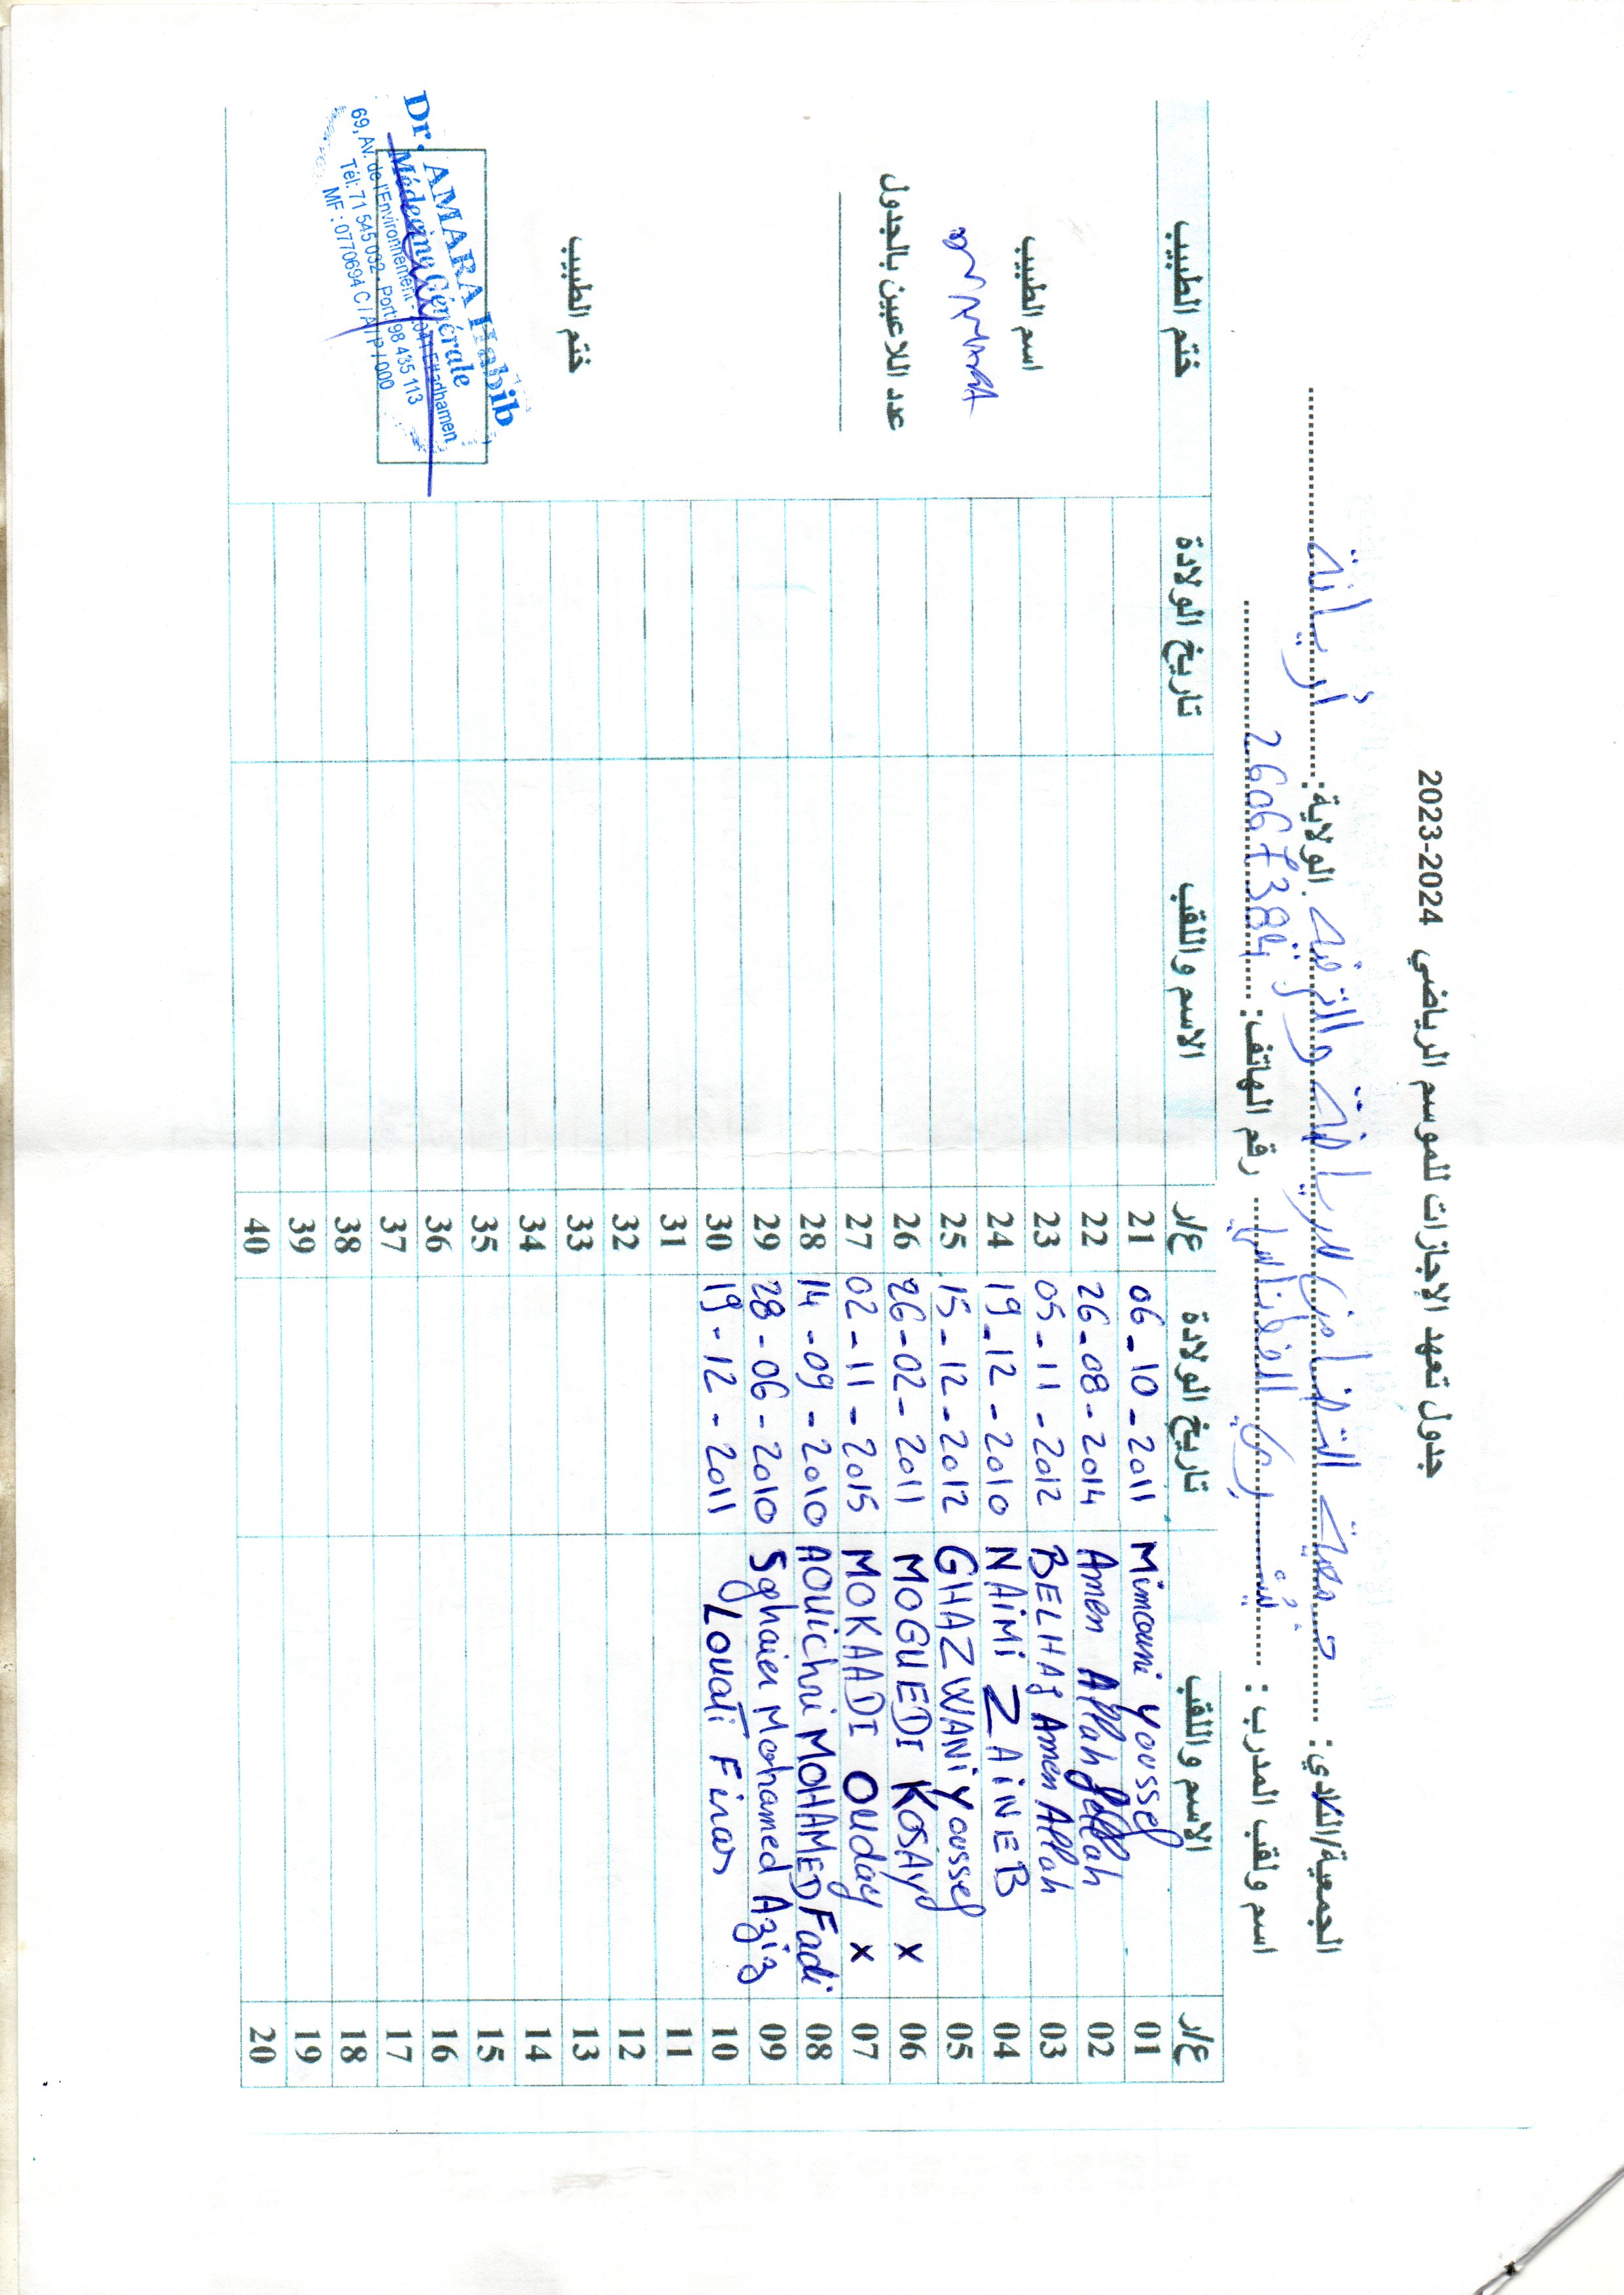 جدول تعهد الإجازات للموسم الرياضي 2023-2024
الجمعية/النادي: جمعية التضامن للرياضة والترفيه الولاية: أريانة
اسم ولقب المدرب: رقم الهاتف: 26067384
ع/ر الاسم واللقب تاريخ الولادة ع/ر الاسم واللقب تاريخ الولادة ختم الطبيب
01 Mimouni Youssef 06-10-2011 21
02 Amen Allah Jellah 26-08-2014 22
03 BELHAJ Amen Allah 05-11-2012 23
04 NAIMI ZAINEB 19-12-2010 24
05 GHAZWANI Youssef 15-12-2012 25
06 MOGUEDI KOSAY x 26-02-2011 26
07 MOKAADI OUday x 02-11-2015 27
08 AOUICHRI MOHAMED Fadi 14-09-2010 28
09 Sghaier Mohamed Aziz 28-06-2010 29
10 Louati Firas 19-12-2011 30
11 31
12 32
13 33
14 34
15 35
16 36
17 37
18 38
19 39
20 40
اسم الطبيب
Dr AMARA
عدد اللاعبين بالجدول
ختم الطبيب
Dr. AMARA Habib
Médecine Générale
69, Av. de l'Environnement - 2041 Ettadhamen
Tél: 71 545 032 - Port: 98 435 113
MF: 0770694 C / A / P / 000